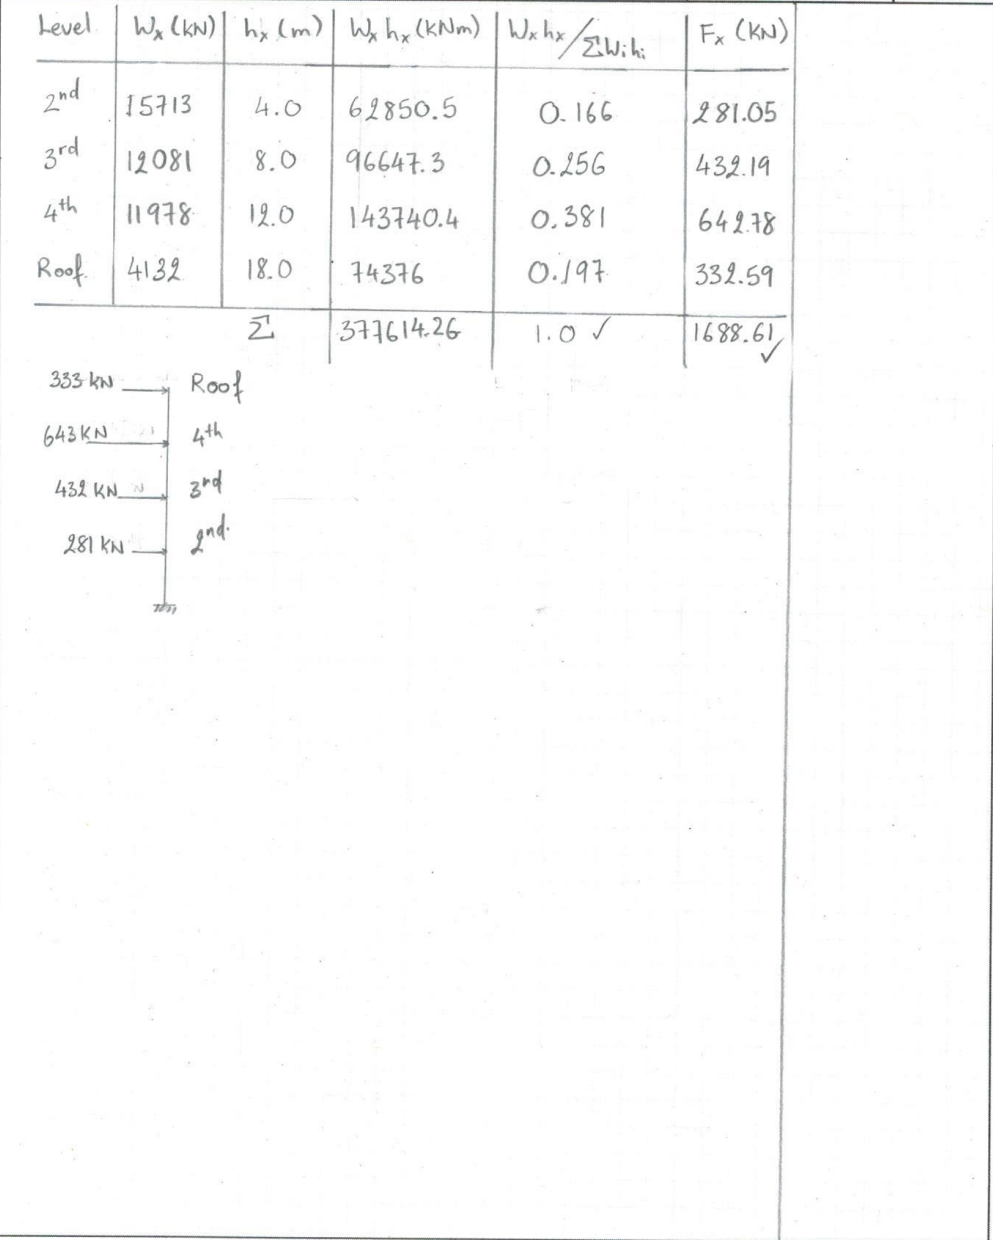 Level Wx (kN) hx (m) Wx hx (kNm) Wx hx / ΣWihi Fx (KN)
2nd 15713 4.0 62850.5 0.166 281.05
3rd 12081 8.0 96647.3 0.256 432.19
4th 11978 12.0 143740.4 0.381 642.78
Roof 4132 18.0 74376 0.197 332.59
Σ 377614.26 1.0 ✓ 1688.61 ✓
333 kN Roof
643 KN 4th
432 KN 3rd
281 KN 2nd.